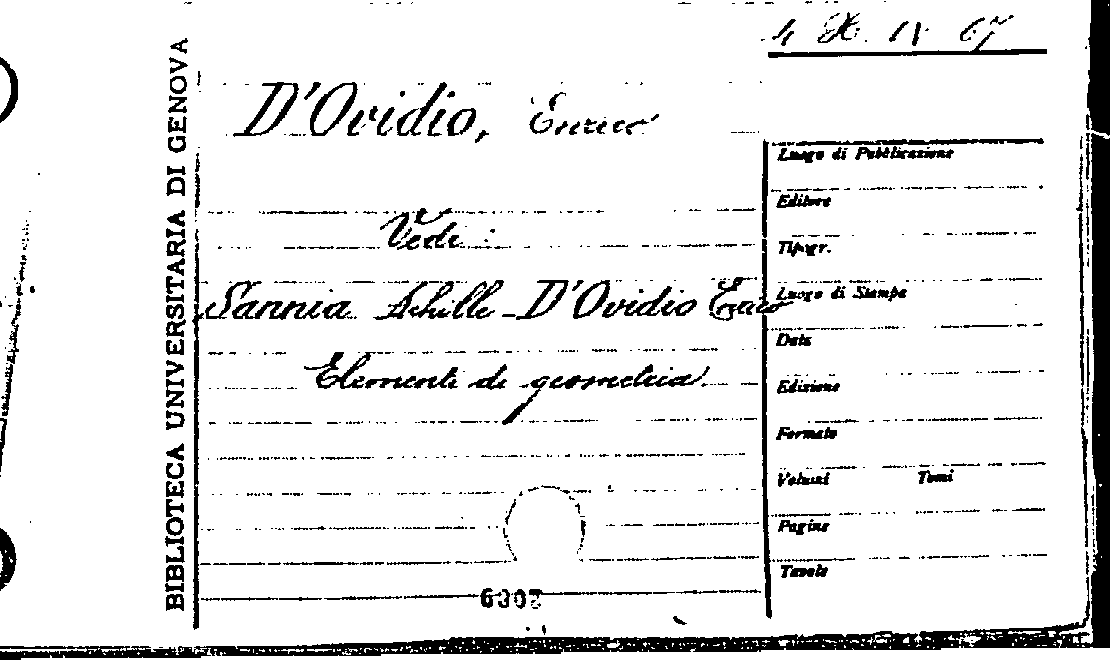 4 H. IV 67
BIBLIOTECA UNIVERSITARIA DI GENOVA
D'Ovidio, Enrico
Vedi:
Sannia Achille - D'Ovidio Enrico
Elementi di geometria.
Luogo di Pubblicazione
Editore
Tipogr.
Luogo di Stampa
Data
Edizione
Formato
Volumi Tomi
Pagine
Tavole